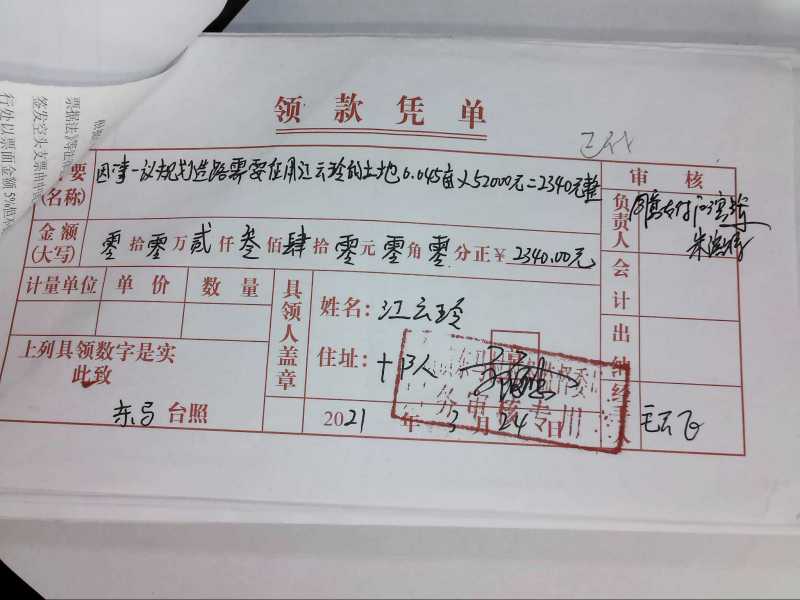 票据法》等
签发空头支票
行处以票面金额5%
领款凭单
要
(名称)
因事一议规划造路需要征用江云珍的土地0.045亩×52000元=2340元整
审核
负责人
同意支付
金额
(大写)
零拾零万贰仟叁佰肆拾零元零角零分正¥2340.00元
会计
计量单位 单价 数量
具领人盖章
姓名:江云珍
住址:十队
出纳
上列具领数字是实
此致
台照
2021年3月24日
务审核专
经手人
毛云飞